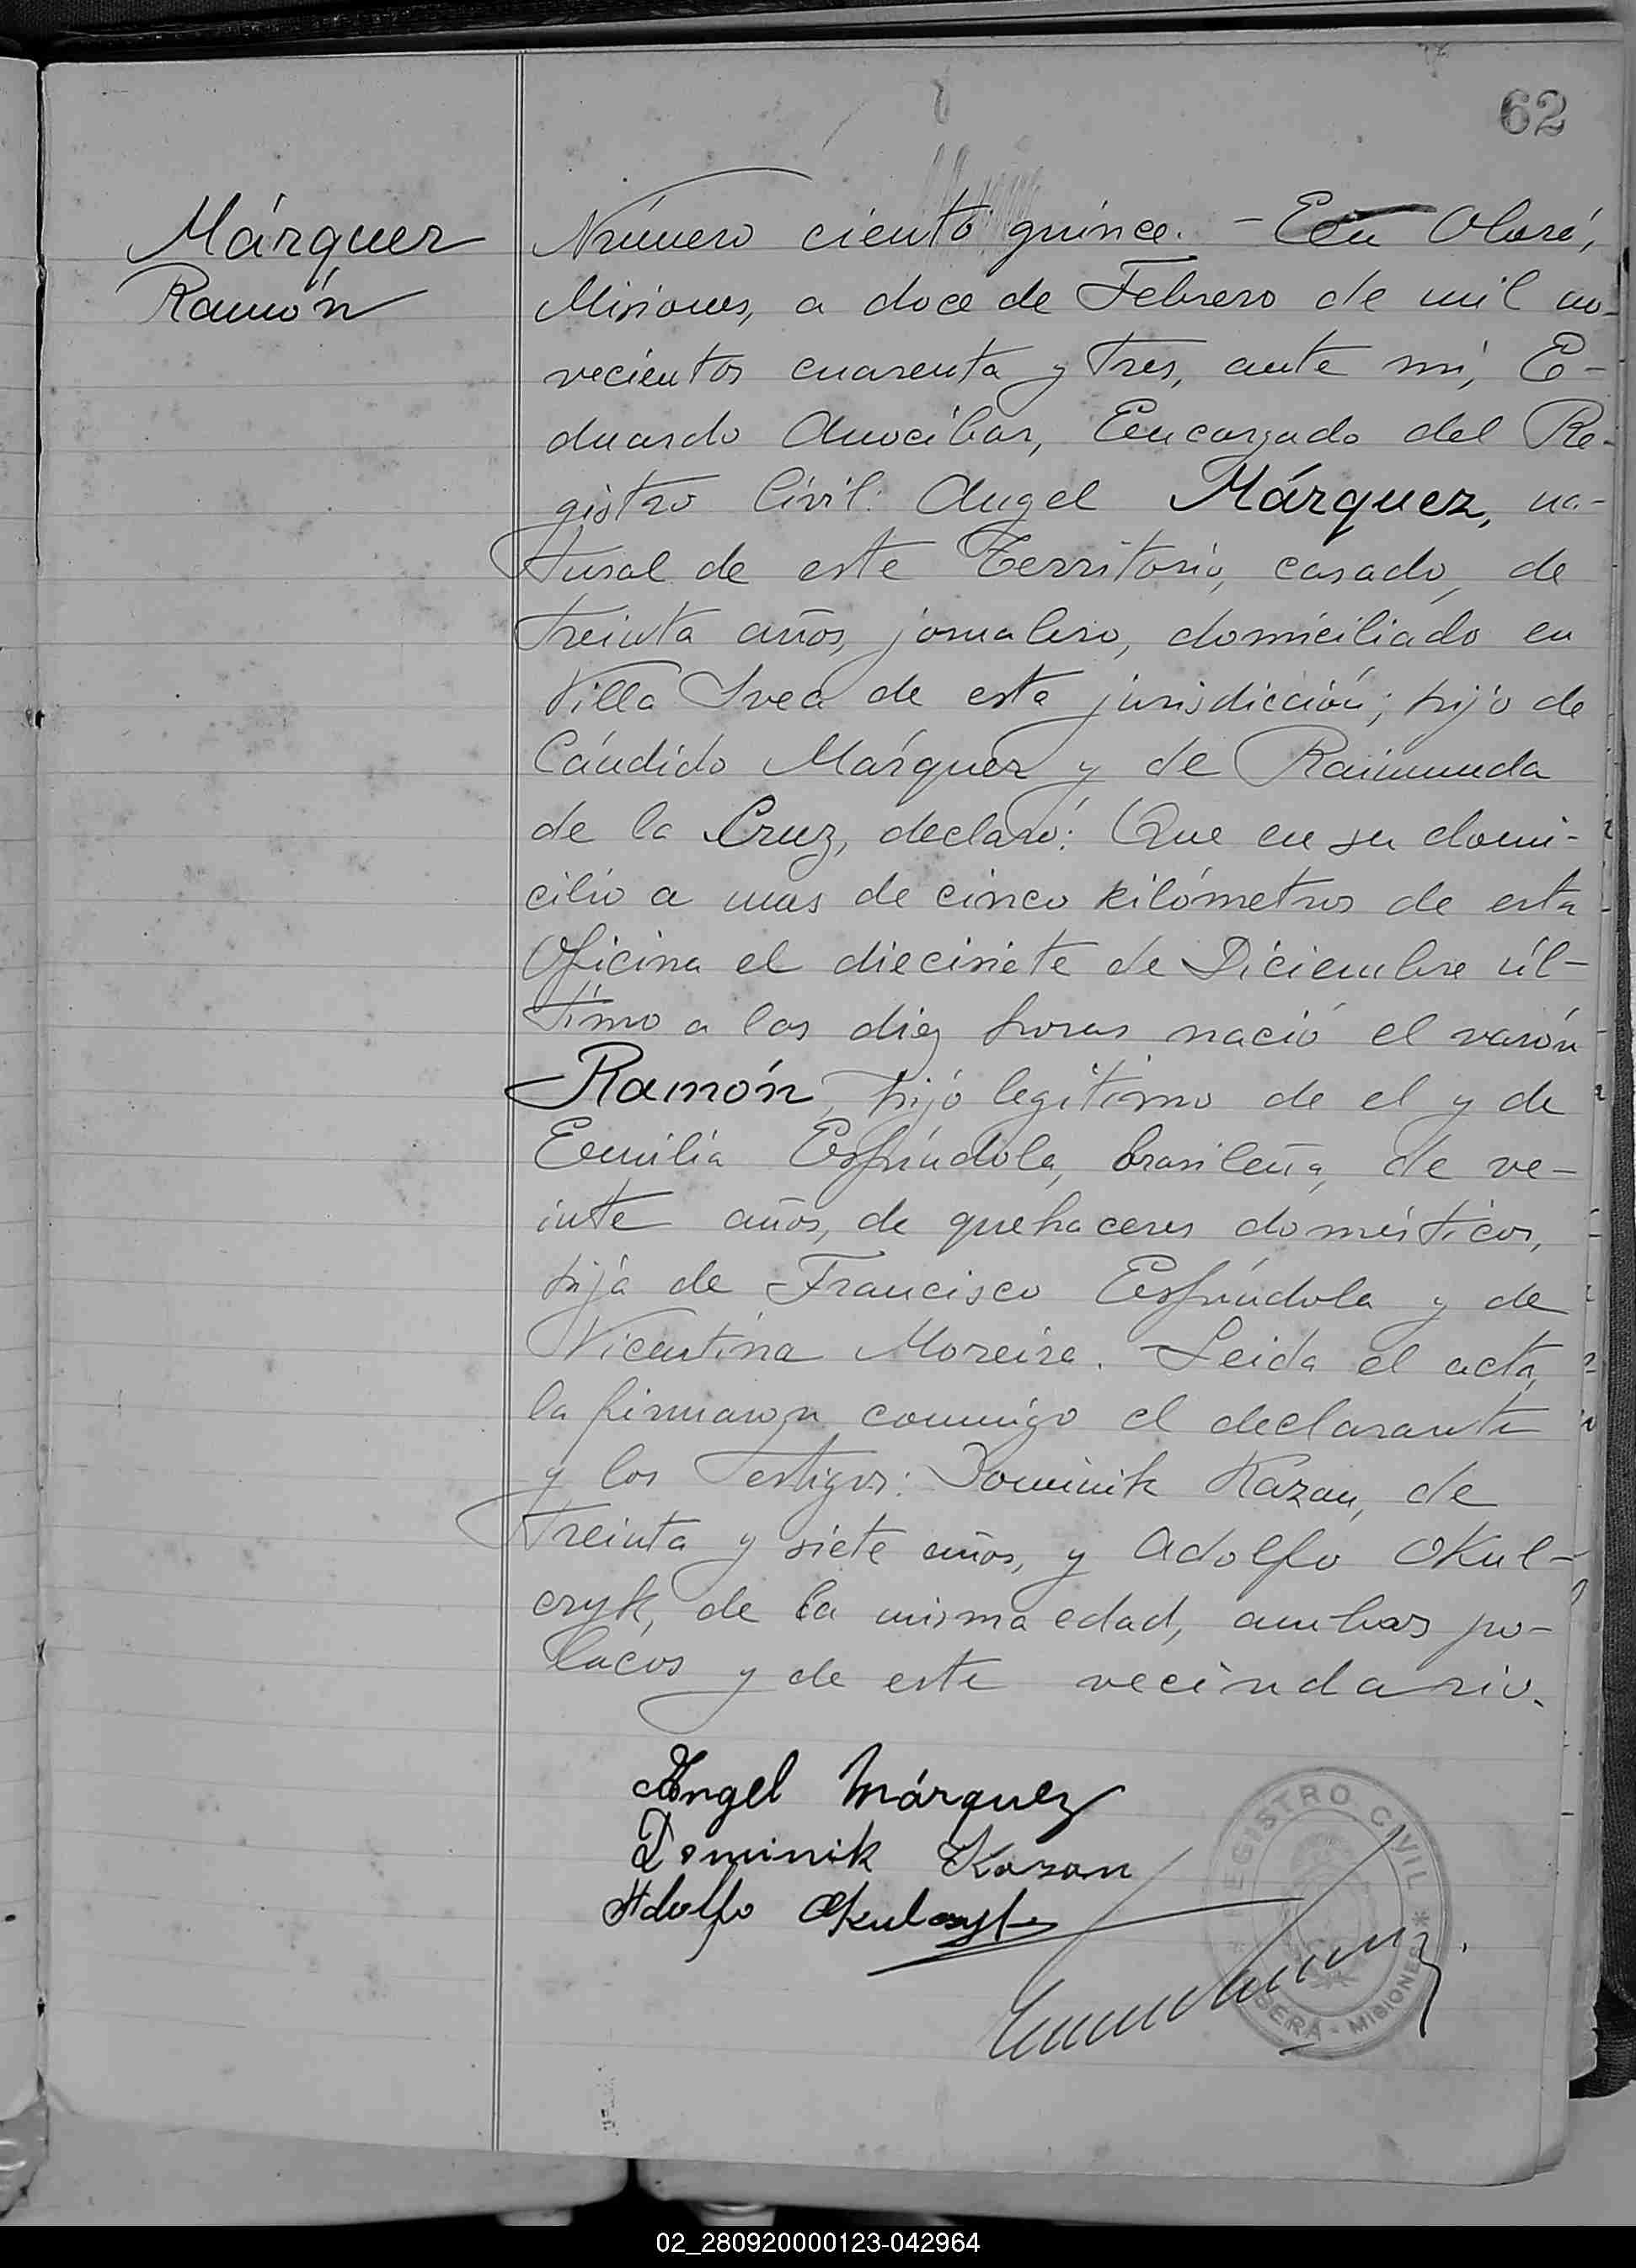 62
Márquez
Ramón
Número ciento quince. - En Oberá,
Misiones, a doce de Febrero de mil no-
vecientos cuarenta y tres, ante mí, E-
duardo Anocibar, Encargado del Re-
gistro Civil: Angel Márquez, na-
tural de este Territorio, casado, de
treinta años, jornalero, domiciliado en
Villa Svea de esta jurisdicción; hijo de
Cándido Márquez y de Raimunda
de la Cruz, declaró: Que en su domi-
cilio a mas de cinco kilómetros de esta
Oficina el diecisiete de Diciembre úl-
timo a las diez horas nació el varón
Ramón, hijo legítimo de el y de
Emilia Espíndola, brasileña, de ve-
inte años, de quehaceres domésticos,
hija de Francisco Espíndola y de
Vicentina Moreira. Leida el acta,
la firmaron conmigo el declarante
y los testigos: Dominik Kazan, de
treinta y siete años, y Adolfo Okul-
czyk, de la misma edad, ambos po-
lacos y de este vecindario.
Angel Márquez
Dominik Kazan
Adolfo Okulczyk
REGISTRO CIVIL
OBERÁ - MISIONES
02_280920000123-042964